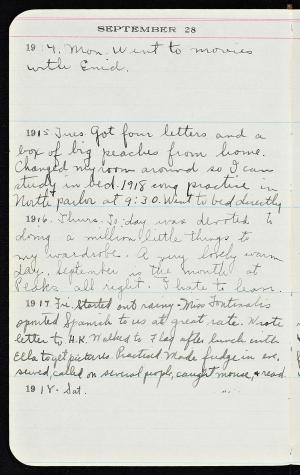 SEPTEMBER 28
1914. Mon. Went to movies
with Enid.
1915 Tues. Got four letters and a
box of big peaches from home.
Changed my room around so I can
study in bed. 1918 song practise in
North parlor at 9:30. Went to bed directly
1916. Thurs. To-day was devoted to
doing a million little things to
my wardrobe. A very lovely warm
day. September is the month at
Peaks all right. I hate to leave.
1917 Fri. Started out rainy - Miss
spouted Spanish to us at great rate. Wrote
letter to H.K. Walked to Flag after lunch with
Ella to get pictures. Practised. Made fudge in eve,
sewed, called on several people, caught mouse, & read
1918. Sat.